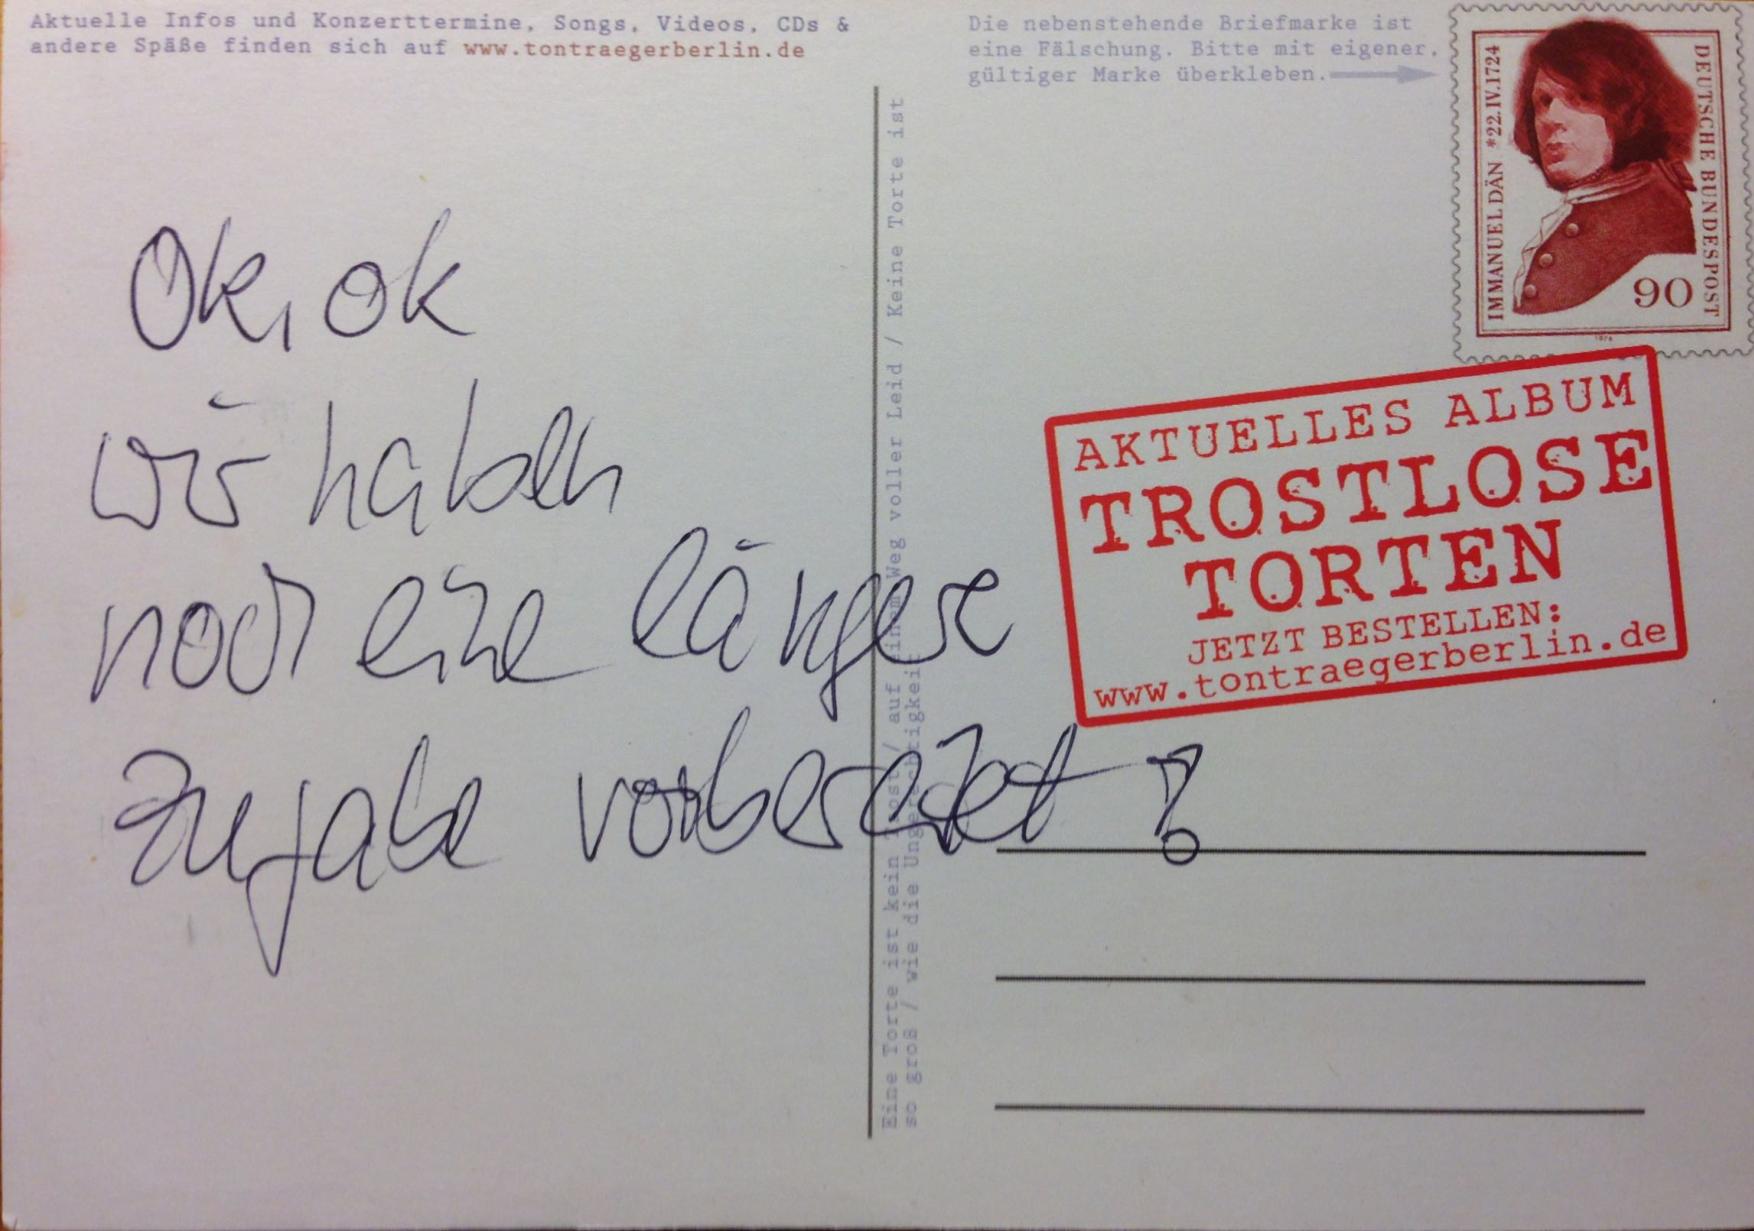 Aktuelle Infos und Konzerttermine, Songs, Videos, CDs &
andere Späße finden sich auf www.tontraegerberlin.de
Die nebenstehende Briefmarke ist
eine Fälschung. Bitte mit eigener,
gültiger Marke überkleben.
IMMANUEL DÄN *22.IV.1724
DEUTSCHE BUNDESPOST
90
Ok, ok
wir haben
noch eine längere
Zugabe vorbereitet!
Eine Torte ist kein Trost / auf einem Weg voller Leid / Keine Torte ist
so groß / wie die Ungerechtigkeit
AKTUELLES ALBUM
TROSTLOSE
TORTEN
JETZT BESTELLEN:
www.tontraegerberlin.de